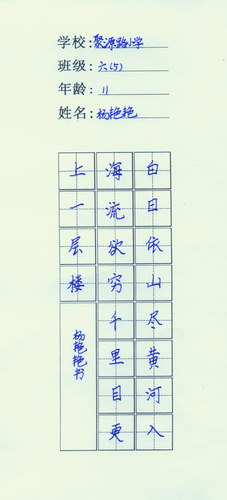 学校：聚源路小学
班级：六（5）
年龄：11
姓名：杨艳艳
白日依山尽黄河入
海流欲穷千里目更
上一层楼
杨艳艳书